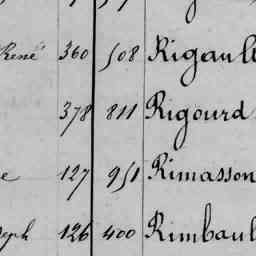 René 360 508 Rigault
378 811 Rigourd
e 127 951 Rimasson
seph 126 400 Rimbault